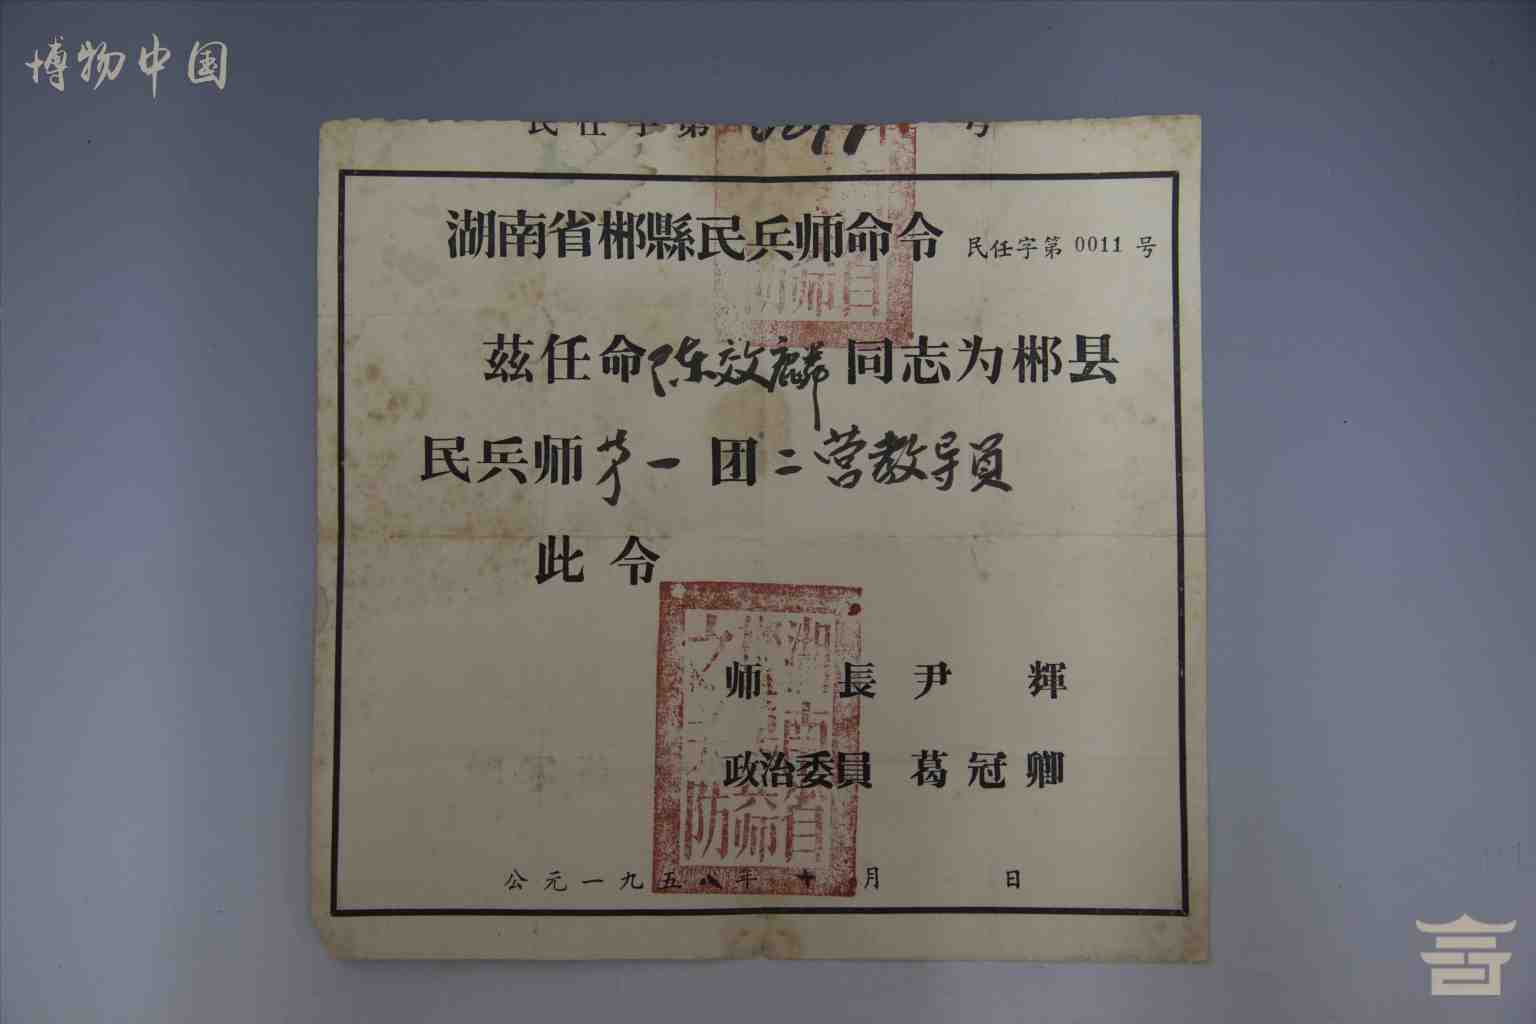 博物中国
民任字第0011号
湖南省郴縣民兵师命令 民任字第 0011 号
茲任命陈效麟同志为郴县
民兵师第一团二营教导员
此令
师長尹輝
政治委員 葛冠卿
公元一九五八年十月 日